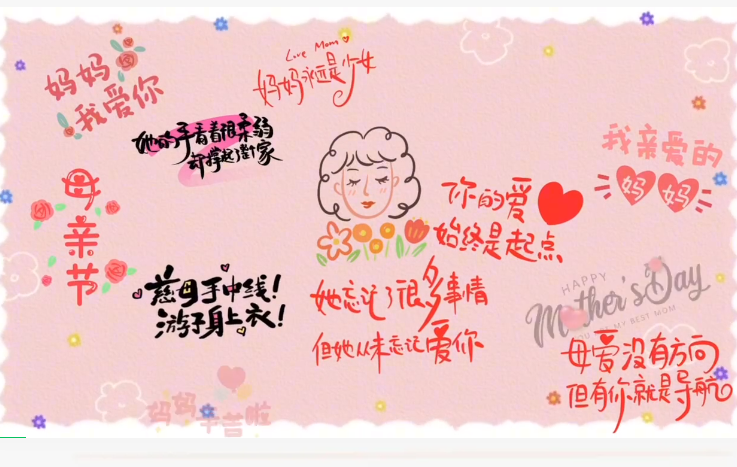 妈妈
我爱你
Love Mom
妈妈永远是少女
她的手看着很柔弱
却撑起了整个家
我亲爱的
妈妈
母亲节
你的爱
始终是起点
慈母手中线!
游子身上衣!
她忘记了很多事情
但她从未忘记爱你
HAPPY
Mother's Day
MY BEST MOM
母爱没有方向
但有你就是导航
妈妈
辛苦啦